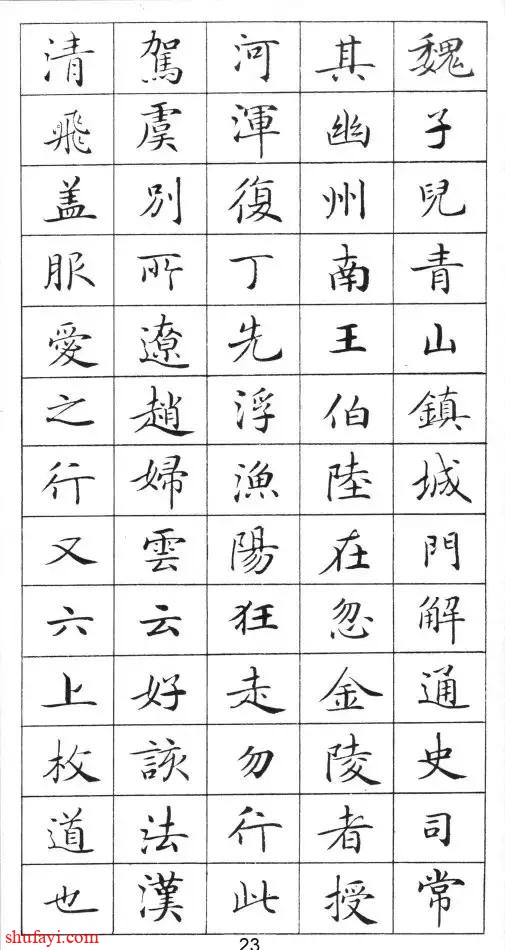 魏子兒青山鎮城門解通史司常
其幽州南王伯陸在忽金陵者授
河渾復丁先浮漁陽狂走勿行此
駕虞別所遼趙婦雲云好該法漢
清飛盖服愛之行又六上枚道也
shufayi.com
23